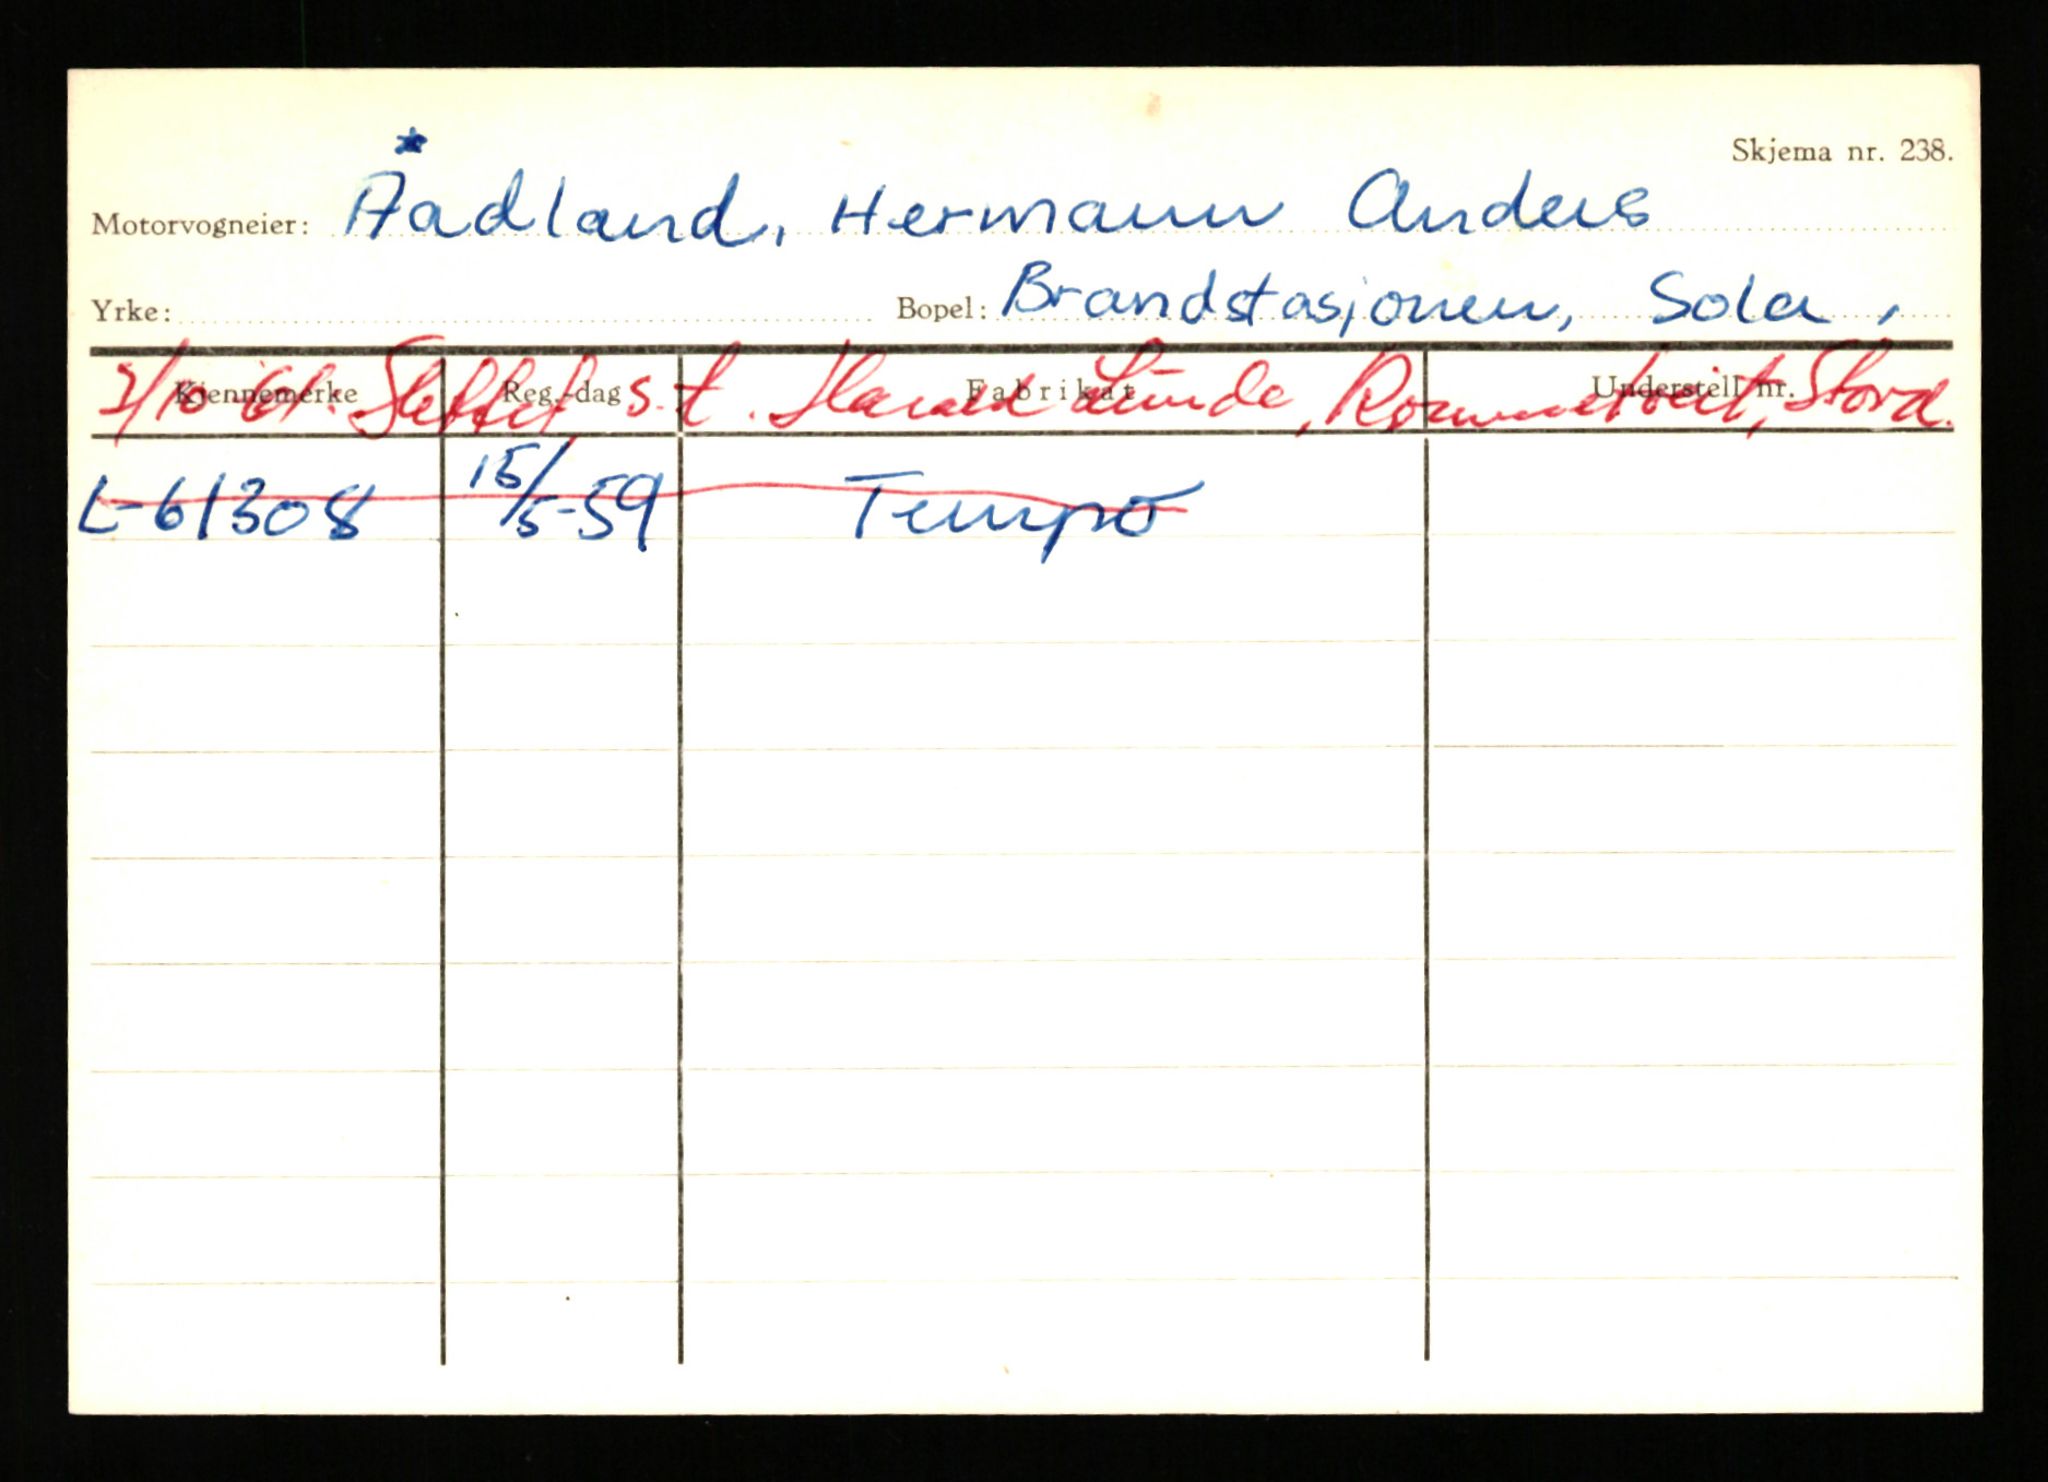 Skjema nr. 238.
Motorvogneier: Åadland, Hermann Anders
Yrke: Bopel: Brandstasjonen, Sola,
Kjennemerke Reg.-dag Fabrikat Understell nr.
/10 61. Slettet s. t. Harald Lunde, Stord.
L-61308 15/5-59 Tempo